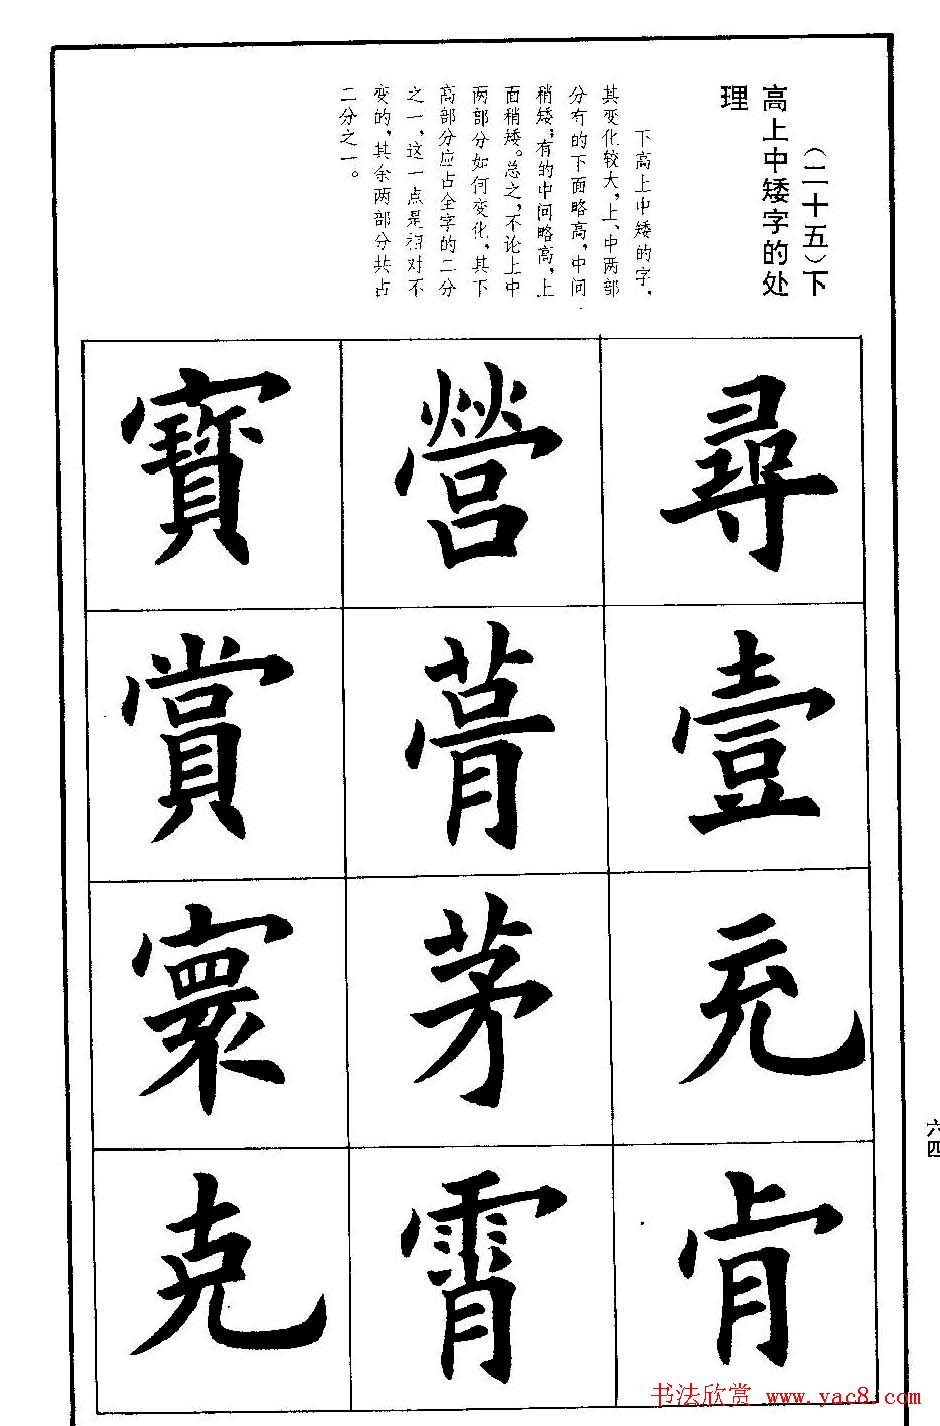 （二十五）下
高上中矮字的处
理
下高上中矮的字，
其变化较大，上、中两部
分有的下面略高，中间
稍矮；有的中间略高，上
面稍矮。总之，不论上中
两部分如何变化，其下
高部分应占全字的二分
之一，这一点是相对不
变的，其余两部分共占
二分之一。
尋壹充肯
營茅霄
寶賞寰克
六四
书法欣赏 www.yac8.com